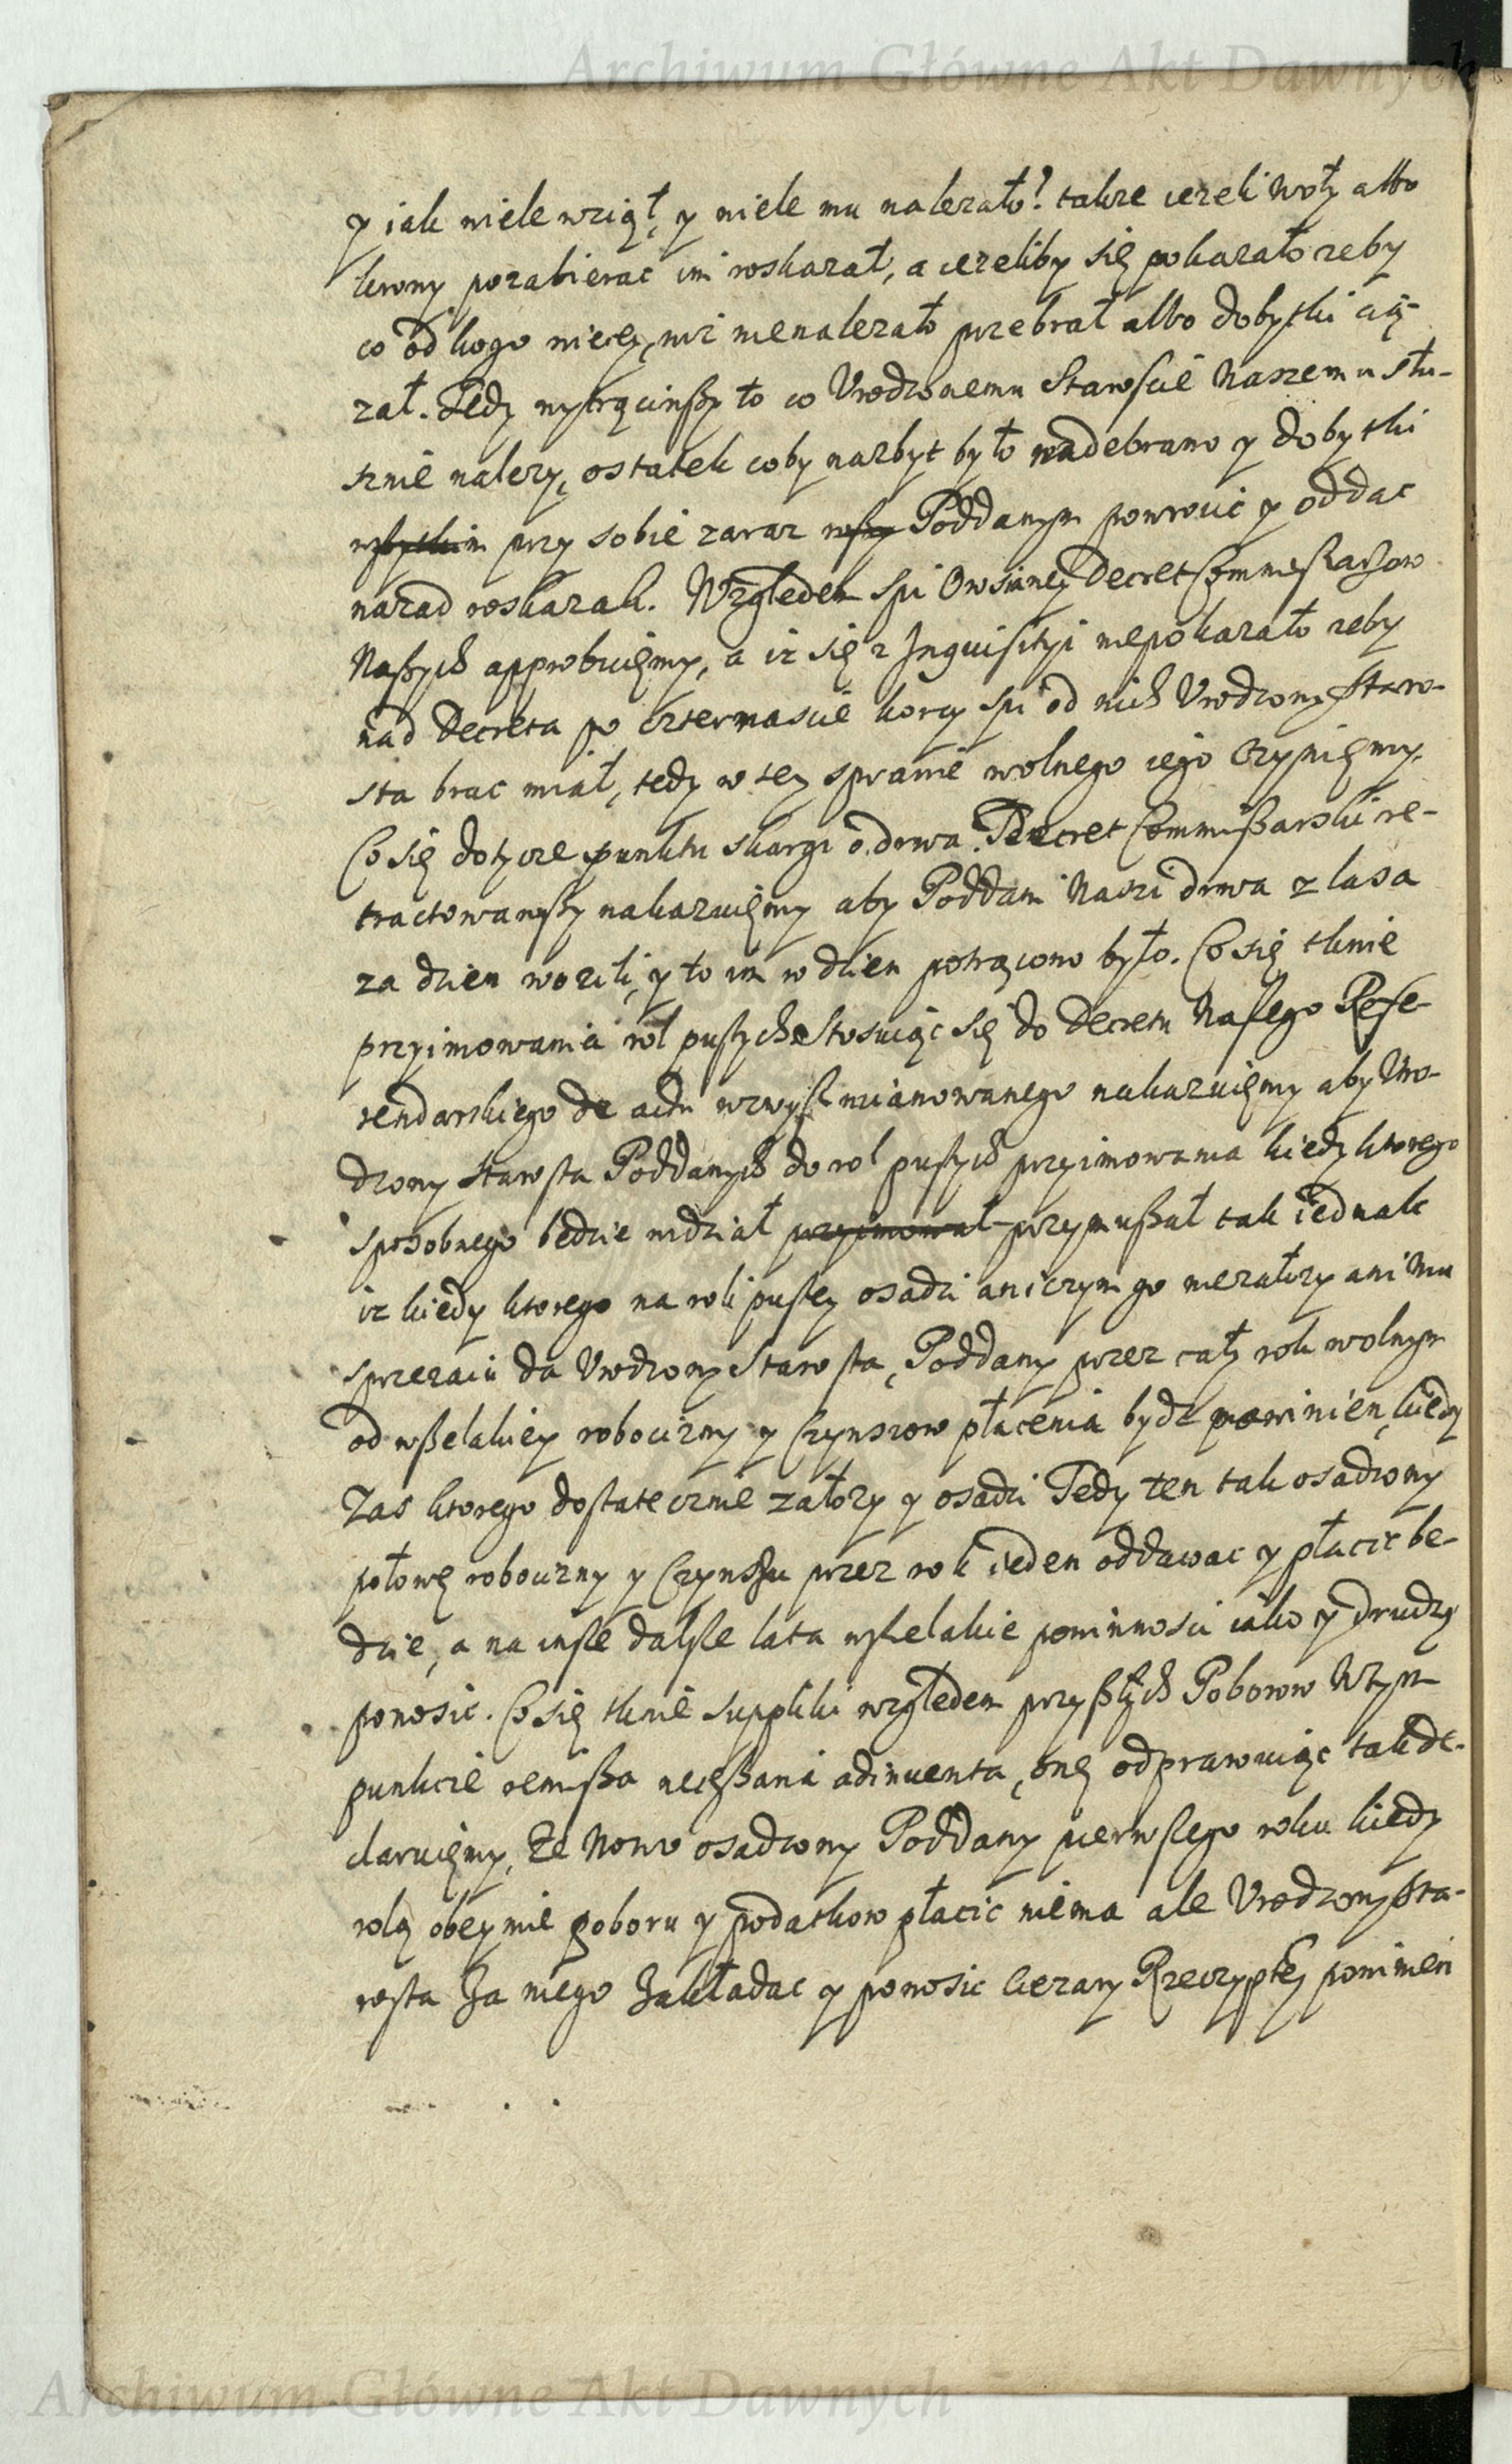 Archiwum Główne Akt Dawnych
y iak wiele wziął, y wiele mu nalezało? takze iezeli woły albo
krowy pozabierac im roskazał, a iezeliby się pokazało zeby
co od kogo więcy, niz nienalezało przebrał albo dobytki cią-
zał. Tedy wytrąciwszy to co Vrodzonemu Staroscie Naszemu słu-
sznie nalezy, ostatek coby nazbyt było nadebrano y dobytki
wszytkim przy sobie zaraz wszy Poddanym powrocic y oddac
nazad roskazali. Względem spi Owsianey Decret Commissarzow
Naszych approbuięmy, a iz się z Inquisityi niepokazało zeby
nad Decreta po czternascie korcy spi od nich Vrodzony Staro-
sta brac miał, tedy w tey sprawie wolnego iego czyniemy.
Co się dotycze punktu skargi o drwa. Decret Commissarski re-
tractowawszy nakazuięmy aby Poddani Naszi drwa z lasa
za dzien wozili, y to im w dzien potrącono było. Co się tknie
przyimowania rol pustych stosuiąc się do Decretu Naszego Refe-
rendarskiego de actu wzwysz mianowanego nakazuięmy aby Vro-
dzony Starosta Poddanych do rol pustych przyimowania kiedy ktorego
sposobnego będzie widział przyimował przymuszał tak iednak
iz kiedy ktorego na roli pustey osadzi aniczym go niezałozy ani mu
sprzezaiu da Vrodzony Starosta, Poddany przez cały rok wolnym
od wszelakiey robocizny y Czynszow płacenia bydz powinien, kiedy
Zas ktorego dostatecznie załozy y osadzi Tedy ten tak osadzony
połowę robocizny y Czynszu przez rok ieden oddawac y płacic bę-
dzie, a na insze dalsze lata wszelakie powinnosci iako y drudzy
ponosic. Co się tknie suppliki względem przyszłych Poborow W tym
punkcie remissa necessaria adinventa, onę odprawuiąc tak de-
claruięmy, Ze Nowo osadzony Poddany pierwszego roku kiedy
rolą obeymie poboru y podatkow płacic niema ale Vrodzony Sta-
rosta Za niego Zakładac y ponosic ciezary Rzeczyptey powinien
Archiwum Główne Akt Dawnych